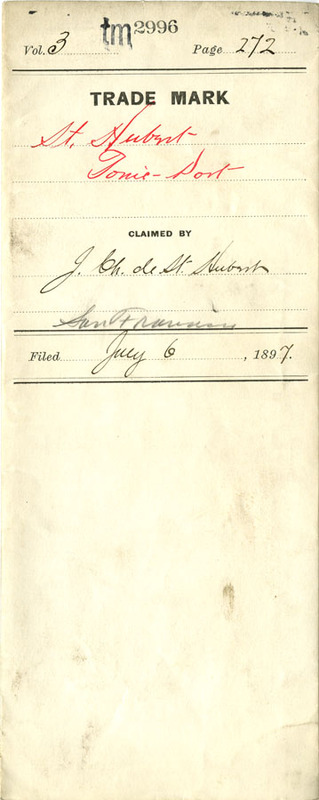 Vol. 3 tm 2996 Page 272
TRADE MARK
St. Hubert
Tonic-Port
CLAIMED BY
J. Ch. de St. Hubert
San Francisco
Filed July 6, 1897.